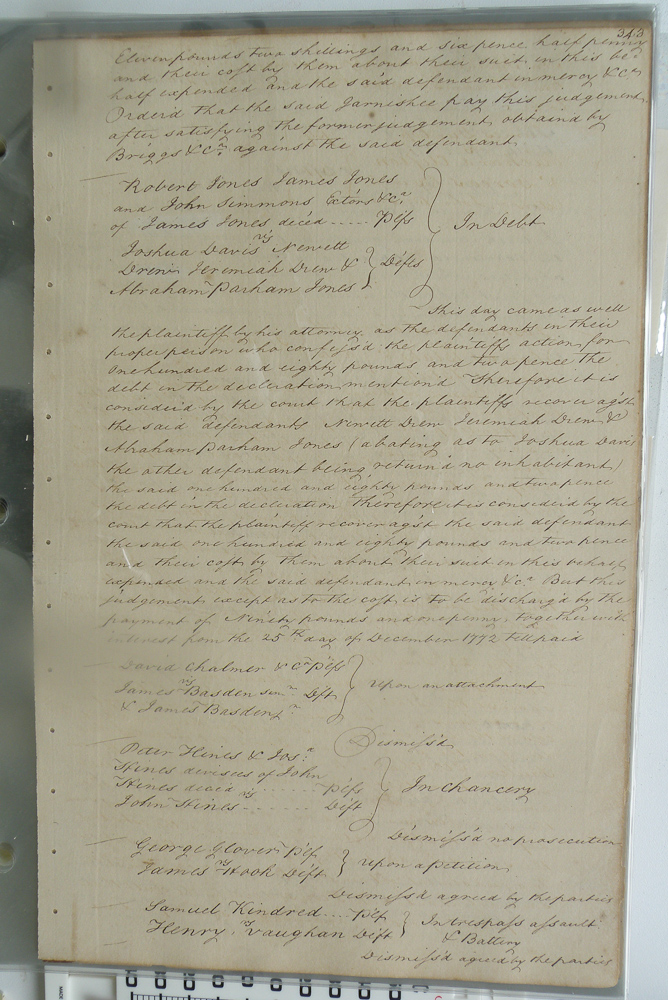 343
Eleven pounds two shillings and six pence half penny
and their cost by them about their suit in this be
half expended and the said defendant in mercy &Ca
Orderd that the said Garnishee pay this judgement
after satisfying the former judgement obtaind by
Briggs & Co. against the said defendant
Robert Jones James Jones
and John Simmons Ectors &Ca.
of James Jones deced ..... Plfs
In Debt
vs
Joshua Davis Newett
Drew Jeremiah Drew &
Abraham Parham Jones
Defts
This day came as well
the plaintiff by his attorney as the defendants in their
proper person who confess'd the plaintiffs action for
One hundred and eighty pounds and two pence the
debt in the declaration mentiond Therefore it is
consider'd by the court that the plaintiffs recover agst
the said defendants Newett Drew Jeremiah Drew &
Abraham Parham Jones (abating as to Joshua Davis
the other defendant being return'd no inhabitant)
the said one hundred and eighty pounds and two pence
the debt in the decleration Therefore it is consider'd by the
court that the plaintiff recover agst the said defendant
the said one hundred and eighty pounds and two pence
and their cost by them about their suit in this behalf
expended and the said defendant in mercy &Ca But this
judgement except as to the cost is to be discharg'd by the
payment of Ninety pounds and one penny together with
interest from the 25th day of December 1772 till paid
David Chalmer & Co Plfs
vs
James Basden senr Deft
& James Basden jr
upon an attachment
Dismiss'd
Peter Hines & Jos.
Hines devisees of John
Hines deced ....... Plfs
vs
John Hines ....... Deft
In Chancery
Dismiss'd no prosecution
George Glover Plf
vs
James Hook Deft
upon a petition
Dismiss'd agreed by the parties
Samuel Kindred .... Plf
vs
Henry Vaughan Deft
In trespass assault
& Battery
Dismiss'd agreed by the parties